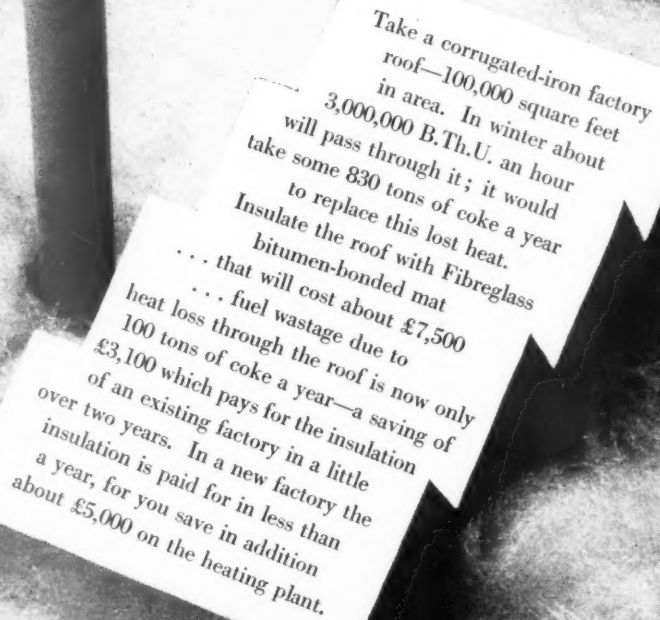 Take a corrugated-iron factory
roof—100,000 square feet
in area. In winter about
3,000,000 B.Th.U. an hour
will pass through it; it would
take some 830 tons of coke a year
to replace this lost heat.
Insulate the roof with Fibreglass
bitumen-bonded mat
. . . that will cost about £7,500
. . . fuel wastage due to
heat loss through the roof is now only
100 tons of coke a year—a saving of
£3,100 which pays for the insulation
of an existing factory in a little
over two years. In a new factory the
insulation is paid for in less than
a year, for you save in addition
about £5,000 on the heating plant.